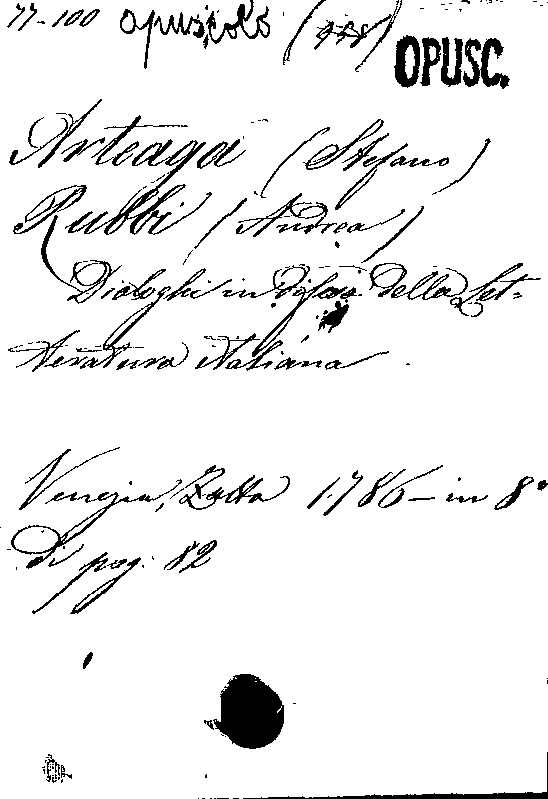 77-100 opuscolo (778)
OPUSC.
Arteaga (Stefano)
Rubbi (Andrea)
Dialoghi in difesa della Let-
teratura italiana
Venezia, Zatta 1786 - in 8°
di pag: 82